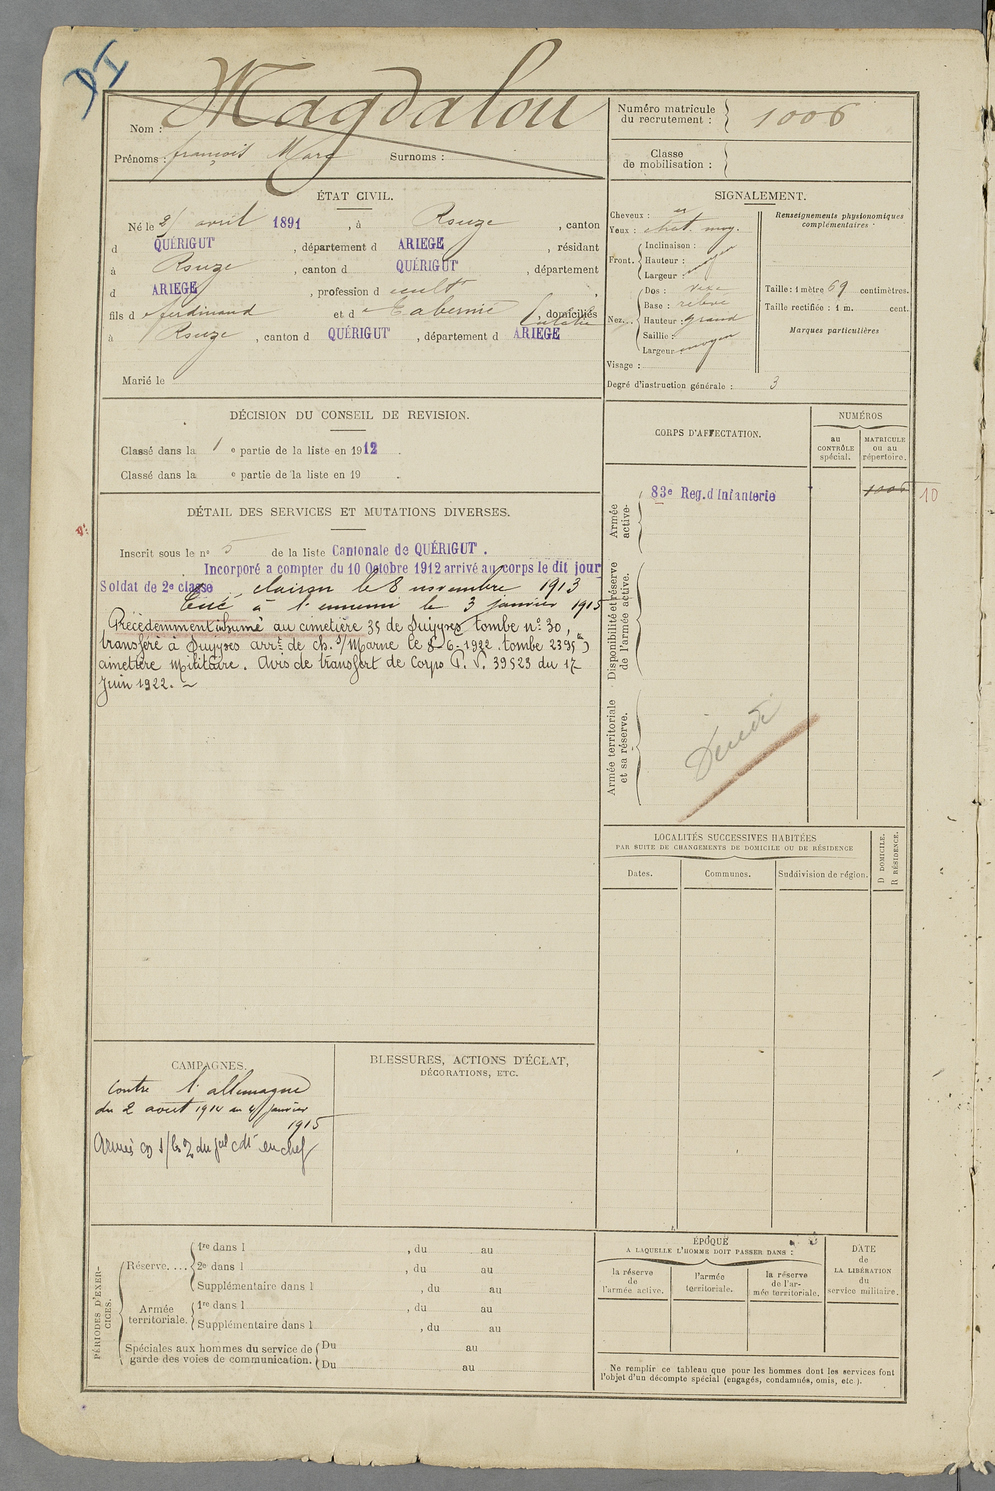 Nom : Magdalou
Prénoms : françois Marc Surnoms :
Numéro matricule du recrutement : 1006
Classe de mobilisation :
ÉTAT CIVIL.
Né le 2 avril 1891, à Rouze, canton
d QUÉRIGUT, département d ARIEGE, résidant
à Rouze, canton d QUÉRIGUT, département
d ARIEGE, profession d cultr
fils d e ferdinand et d e Tabernié, domiciliés
à Rouze, canton d QUÉRIGUT, département d ARIEGE
Marié le
SIGNALEMENT.
Cheveux :
Yeux : chat. moy.
Front. Inclinaison :
Hauteur : moyen
Largeur :
Nez... Dos : vexe
Base : relevé
Hauteur : grand
Saillie :
Largeur moyen
Visage :
Degré d'instruction générale : 3
Renseignements physionomiques
complémentaires
Taille : 1 mètre 69 centimètres.
Taille rectifiée : 1 m. cent.
Marques particulières
DÉCISION DU CONSEIL DE REVISION.
Classé dans la 1 e partie de la liste en 1912.
Classé dans la e partie de la liste en 19 .
CORPS D'AFFECTATION.
NUMÉROS
au CONTRÔLE spécial.
MATRICULE ou au répertoire.
Armée active.
83e Reg. d'Infanterie
1006
10
Disponibilité et réserve de l'armée active.
Armée territoriale et sa réserve.
DÉTAIL DES SERVICES ET MUTATIONS DIVERSES.
Inscrit sous le n° 5 de la liste Cantonale de QUÉRIGUT.
Incorporé a compter du 10 Octobre 1912 arrivé au corps le dit jour
Soldat de 2e classe, clairon le 8 novembre 1913
Tué à l'ennemi le 3 janvier 1915
Précédemment inhumé au cimetière 35 de Suippes tombe n° 30,
transféré à Suippes arrt de ch. s/Marne le 8-6-1922. tombe 2395
cimetière militaire. Avis de transfert de Corps P.V. 39523 du 17
juin 1922.
LOCALITÉS SUCCESSIVES HABITÉES
PAR SUITE DE CHANGEMENTS DE DOMICILE OU DE RÉSIDENCE
Dates. Communes. Suddivision de région. D DOMICILE. R RÉSIDENCE.
CAMPAGNES.
contre l'allemagne
du 2 aout 1914 au 4 janvier
1915
Armées s/ les O. du gal cdt en chef
BLESSURES, ACTIONS D'ÉCLAT,
DÉCORATIONS, ETC.
PÉRIODES D'EXERCICES.
Réserve....
1re dans l , du au
2e dans l , du au
Supplémentaire dans l , du au
Armée territoriale.
1re dans l , du au
Supplémentaire dans l , du au
Spéciales aux hommes du service de
garde des voies de communication.
Du au
Du au
ÉPOQUE
A LAQUELLE L'HOMME DOIT PASSER DANS :
la réserve de l'armée active.
l'armée territoriale.
la réserve de l'armée territoriale.
DATE de LA LIBÉRATION du service militaire.
Ne remplir ce tableau que pour les hommes dont les services font
l'objet d'un décompte spécial (engagés, condamnés, omis, etc ).